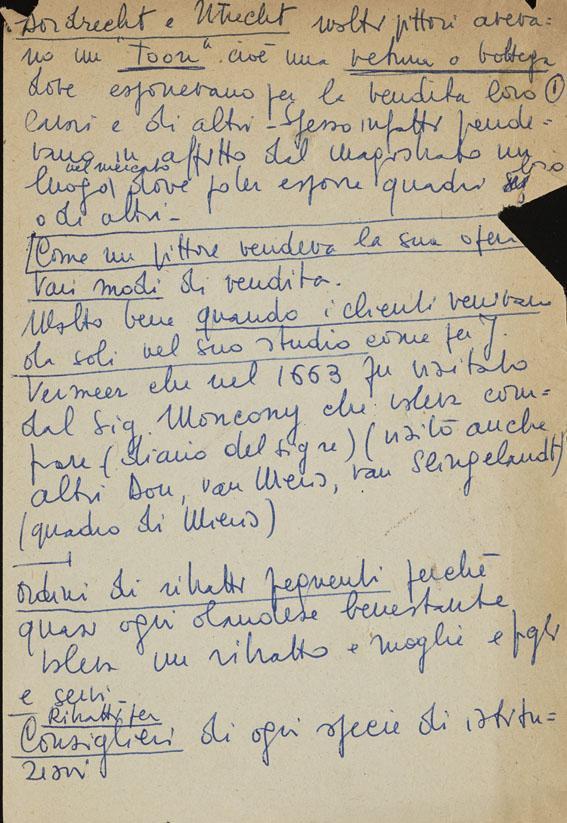 Dordrecht e Utrecht molti pittori aveva=
no un "Toon" cioè una vetrina o bottega
dove esponevano per la vendita loro ①
lavori e di altri - Spesso infatti prende=
vano in affitto dal magistrato un
nel mercato
luogo dove poter esporre quadri loro
o di altri -
Come un pittore vendeva la sua opera
Vari modi di vendita.
Molto bene quando i clienti venivano
da soli nel suo studio come per J.
Vermeer che nel 1663 fu visitato
dal Sig. Moncony che voleva com=
prare (diario del sigre) (visitò anche
altri Dou, van Mieris, van Slingelandt)
(quadro di Mieris)
Ordini di ritratti frequenti perchè
quasi ogni olandese benestante
voleva un ritratto e moglie e figli
e servi -
Ritratti per
Consiglieri di ogni specie di istitu=
zioni